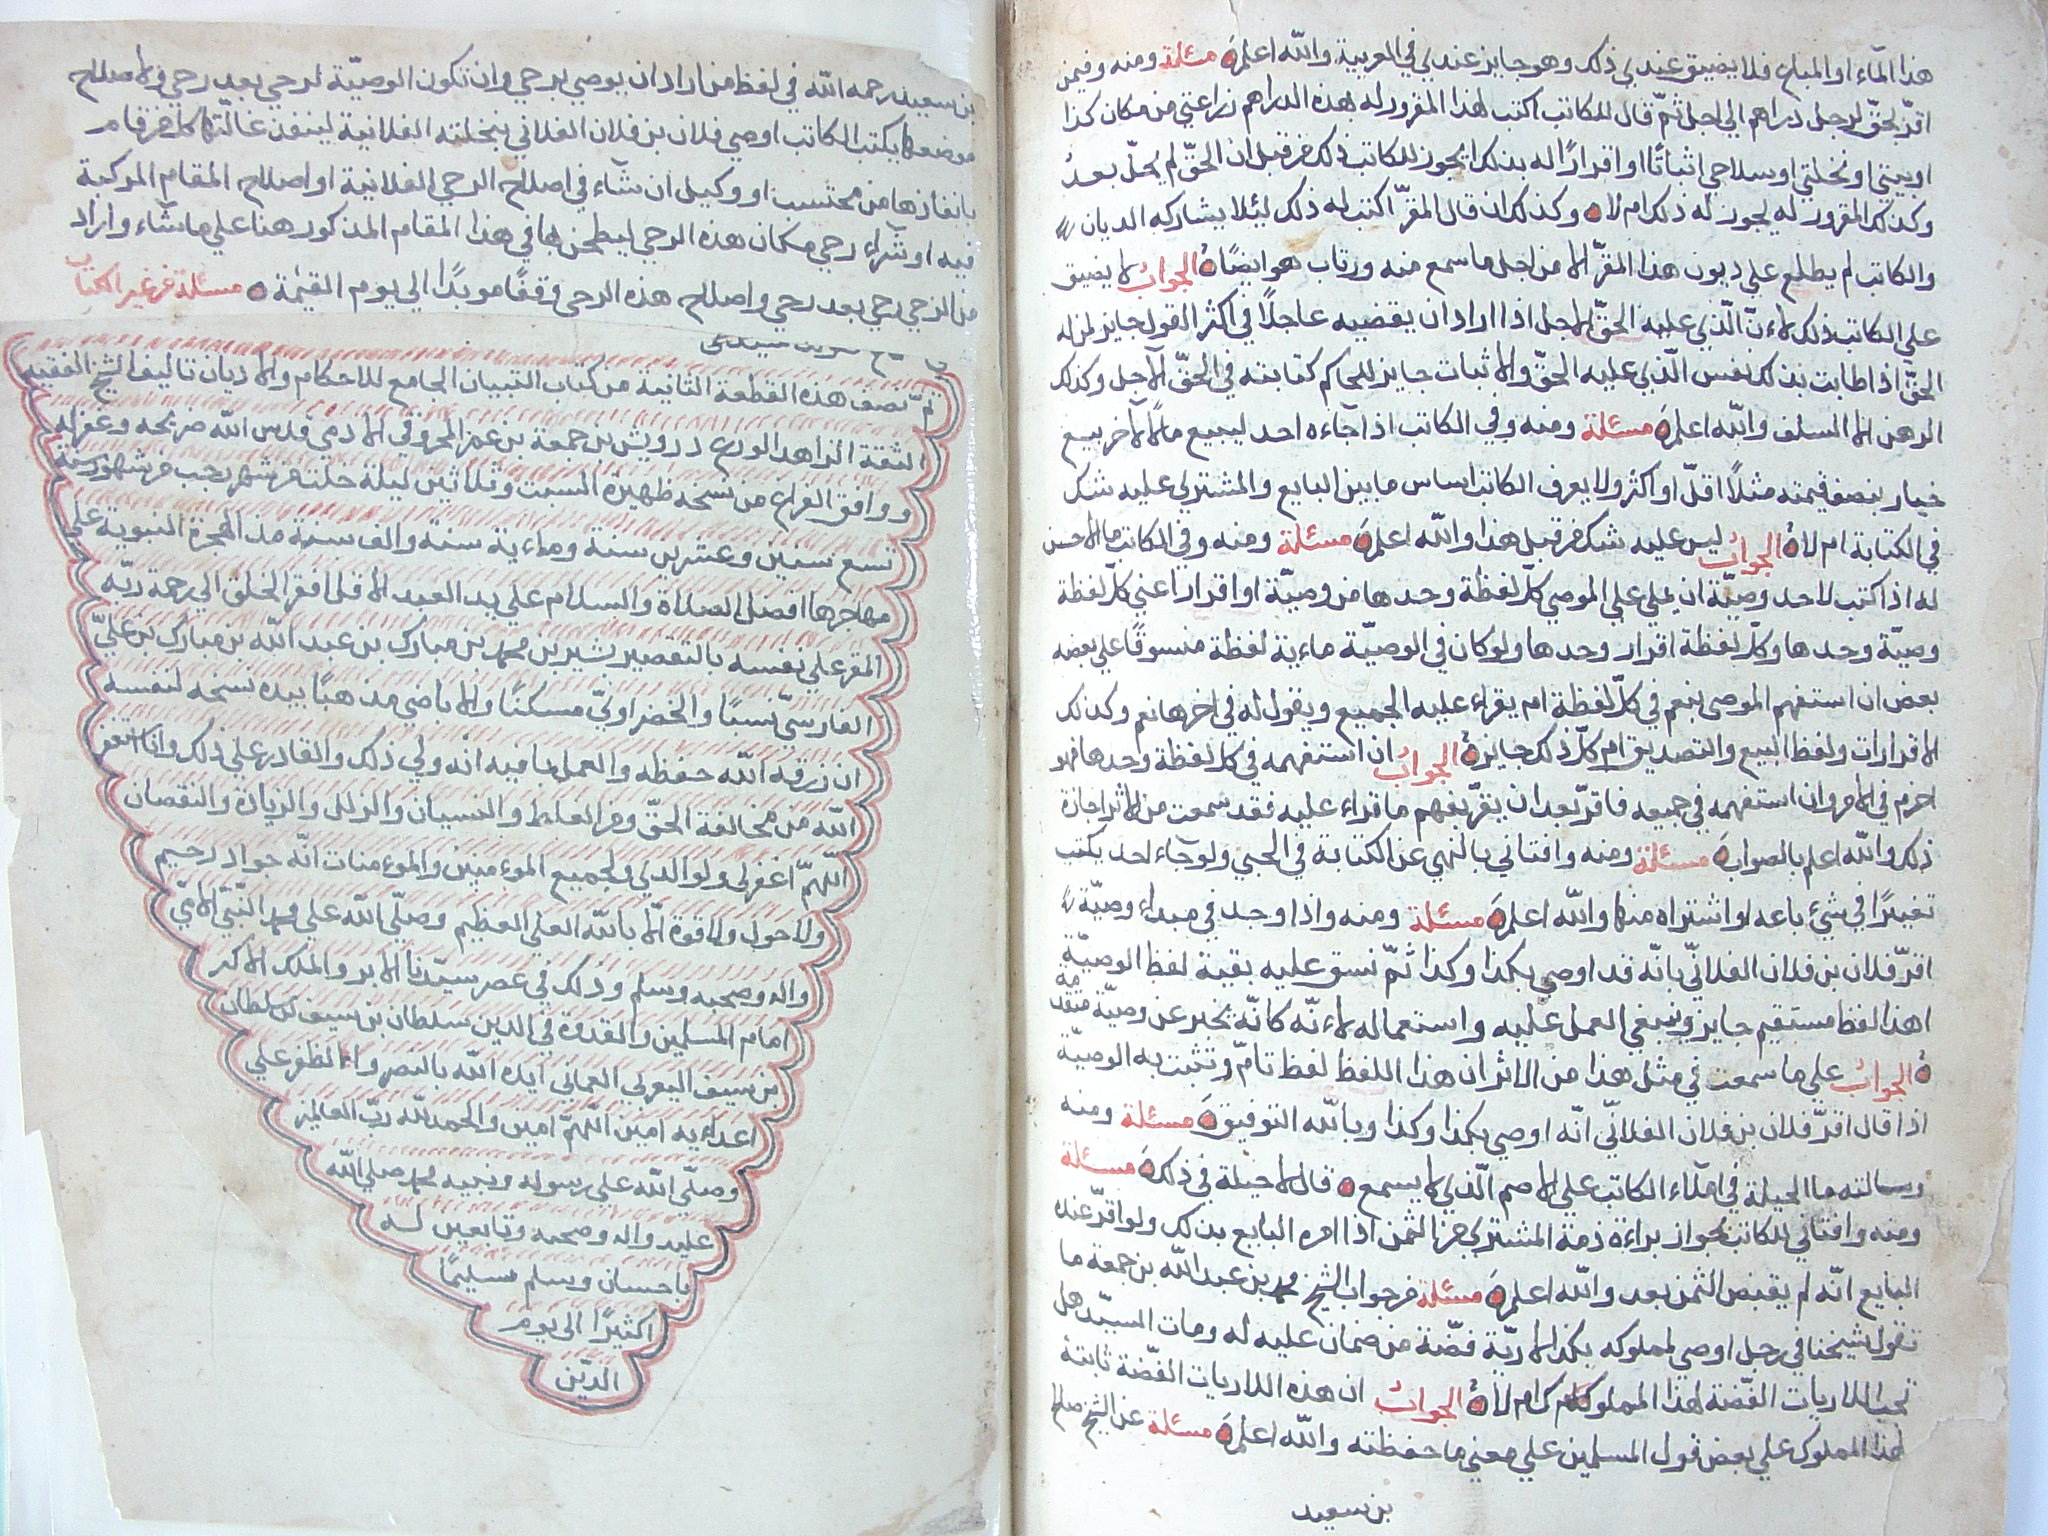 هذا الماء او المباع فلا يضيق عندي ذلك وهو جايز عندي في العربية والله اعلم مسئلة ومنه وفيمن
اقر بحق لرجل دراهم الي اجل ثم قال للكاتب اكتب لهذا المقرور له بهذه الدراهم زراعتي من مكان كذا
او بيتي او نخلتي او سلاحي اثباتًا او اقرارًا له بذلك ايجوز للكاتب ذلك من قبل ان الحق لم يحل بعد
وكذلك المقرور له يجوز له ذلك ام لا وكذلك ان قال المقر اكتب له ذلك ليئلا يشاركه الديان
والكاتب لم يطلع علي ديون هذا المقر الا من اجل ما سمع منه ورتاب هو ايضًا الجواب لا يضيق
علي الكاتب ذلك لاءن الذي عليه الحق الاجل اذا اراد ان يقضيه عاجلًا في اكثر القول جايز لمن له
الحق اذا طابت بذلك نفس الذي عليه الحق والاثبات جايز للحاكم كتابته في الحق الآجل وكذلك
الرهن الا السلف والله اعلم مسئلة ومنه وفي الكاتب اذا جاءه احد ليبيع مالًا لآخر بيع
خيار بنصف قيمته مثلًا اقل او اكثر ولا يعرف الكاتب اساس ما بين البايع والمشتري عليه شك
في الكتابة ام لا الجواب ليس عليه شك من قبل هذا والله اعلم مسئلة ومنه وفي الكاتب ما الاحسن
له اذا كتب لاحد وصية ان يملي علي الموصي كل لفظة وحدها من وصية او اقرار اعني كل لفظة
وصية وحدها وكل لفظة اقرار وحدها ولو كان في الوصية ماءية لفظة منسوقًا علي بعضه
بعض ان استفهم الموصي بنعم في كل لفظة ام يقراء عليه الجميع ويقول له في اخرها نعم وكذلك
الاقرارات ولفظ البيع والتصديق ام كل ذلك جايز الجواب ان استفهمه في كل لفظة وحدها فهو
احزم في الامر وان استفهمه في جميعه فاقر بعد ان يقر بفهم ما قراء عليه فقد سمعت من الاثر اجازة
ذلك والله اعلم بالصواب مسئلة ومنه وافتاني بالنهي عن الكتابة في الحبي ولو جاء احد يكتب
تغييرًا في شيئ باعه او اشتراه منها والله اعلم مسئلة ومنه واذا وجد في مبداء وصية
اقر فلان بن فلان الفلاني بانه قد اوصي بكذا وكذا ثم نسق عليه بقية لفظ الوصية
اهذا لفظ مستقيم جايز وينبغي العمل عليه واستعماله لاءنه كانه تخبر عن وصية متقدمة
الجواب علي ما سمعت في مثل هذا من الاثر ان هذا اللفظ لفظ تام وتثبت به الوصية
اذا قال اقر فلان بن فلان الفلاني انه اوصي بكذا وكذا وبالله التوفيق مسئلة ومنه
وسالته ما الحيلة في املاء الكاتب علي الاصم الذي لا يسمع قال لا حيلة في ذلك مسئلة
ومنه وافتاني للكاتب بجواز براءة ذمة المشتري من الثمن اذا امره البايع بذلك ولو اقر عنده
البايع انه لم يقبض الثمن بعد والله اعلم مسئلة من جواب الشيخ محمد بن عبد الله بن جمعة ما
تقول شيخنا في رجل اوصي لمملوكه بكذا لارية فضة من ضمان عليه له ومات السيد هل
تجب اللاريات الفضة لهذا المملوك ام لا الجواب ان هذه اللاريات الفضة ثابتة
لهذا المملوك علي بعض قول المسلمين علي معني ما حفظته والله اعلم مسئلة عن الشيخ صالح
بن سعيد
بن سعيد رحمه الله في لفظ من اراد ان يوصي برحي وان تكون الوصية لرحي بعد رحي ولاصلاح
موضعها يكتب الكاتب اوصي فلان بن فلان الفلاني بنخلته الفلانية لينفذ غالتها كل من قام
بانفاذها من محتسب او وكيل ان شاء في اصلاح الرحي الفلانية او اصلاح المقام المركبة
فيه او شراء رحي مكان هذه الرحي ليطحن بها في هذا المقام المذكور هنا علي ما شاء واراد
من الرحي رحي بعد رحي واصلاح هذه الرحي وقفًا موبدًا الي يوم القيمة مسئلة من غير الكتاب
تم نصف هذه القطعة الثانية من كتاب التبيان الجامع للاحكام والاديان تاليف الشيخ الفقيه
الثقة الزاهد الورع درويش بن جمعة بن عمر المحروقي الادمي قدس الله ضريحه وغفر له
ووافق الفراغ من نسخه ظهيرة السبت وثلاثين ليلة خلت من شهر رجب من شهور سنة
تسع سنين وعشرين سنة وماءية سنة والف سنة مذ الهجرة النبوية علي
مهاجرها افضل الصلاة والسلام علي يد العبد الاقل افقر الخلق الي رحمة ربه
المقر علي نفسه بالتقصير بشير بن محمد بن مبارك بن عبد الله بن مبارك بن علي
الفارسي نسبًا والخضراوي مسكنًا والاباضي مذهبًا بيده نسخه لنفسه
ان رزقه الله حفظه والعمل بما فيه انه ولي ذلك والقادر علي ذلك وانا استغفر
الله من مخالفة الحق ومن الغلط والنسيان والزلل والزيادة والنقصان
اللهم اغفر لي ولوالدي ولجميع المومنين والمومنات انه جواد رحيم
ولا حول ولا قوة الا بالله العلي العظيم وصلي الله علي محمد النبي الامي
واله وصحبه وسلم وذلك في عصر سيدنا الابر والملك الاكبر
امام المسلمين والقدوة في الدين سلطان بن سيف بن سلطان
بن سيف اليعربي العماني ايده الله بالنصر والظفر علي
اعداءيه امين اللهم امين والحمد لله رب العالمين
وصلي الله علي رسوله ونبيه محمد صلي الله
عليه واله وصحبه وتابعين له
باحسان وسلم تسليمًا
اكثيرًا الي يوم
الدين